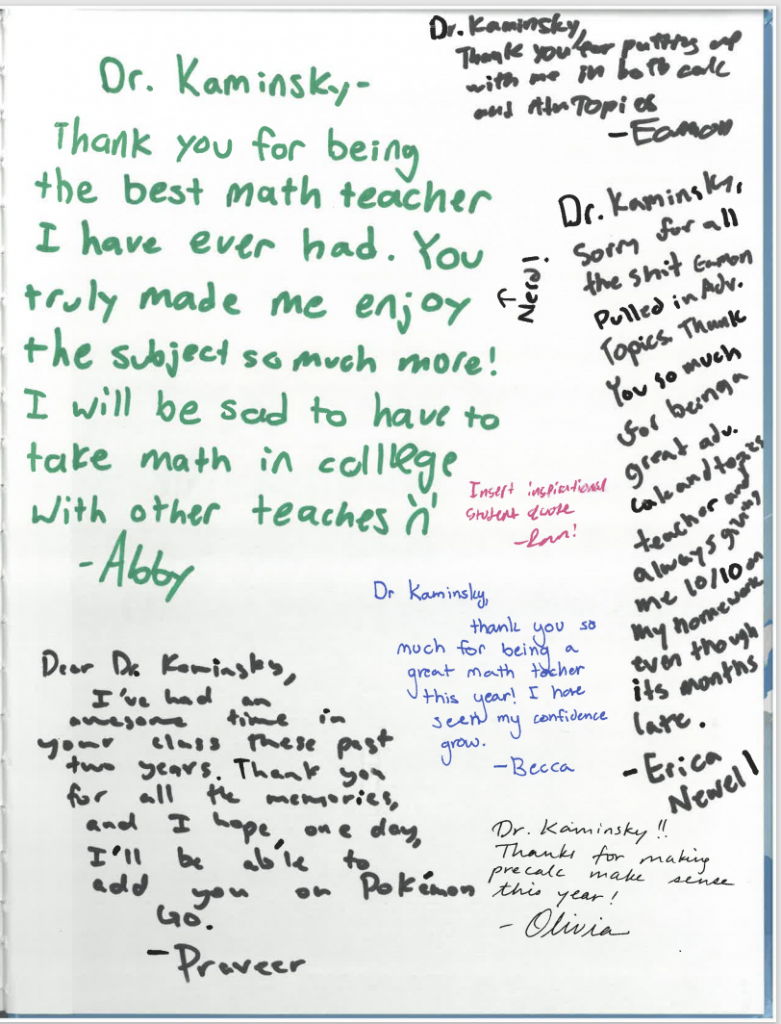 Dr. Kaminsky,
Thank you for putting up
with me in both calc
and Adv Topics
- Eamon
Dr. Kaminsky-
Thank you for being
the best math teacher
I have ever had. You
truly made me enjoy
the subject so much more!
I will be sad to have to
take math in colllege
with other teaches
-Abby
← Nerd!
Dr. Kaminsky,
Sorry for all
the shit Eamon
Pulled in Adv.
Topics. Thank
You so much
for being a
great adv.
calc and topics
teacher and
always giving
me 10/10 on
my homework
even though
its months
late.
- Erica
Newell
Insert inspirational
student quote
Dr Kaminsky,
thank you so
much for being a
great math teacher
this year! I have
seen my confidence
grow.
- Becca
Dear Dr. Kaminsky,
I've had an
awesome time in
your class these past
two years. Thank you
for all the memories,
and I hope one day,
I'll be able to
add you on Pokémon
Go.
- Praveer
Dr. Kaminsky!!
Thanks for making
precalc make sense
this year!
- Olivia